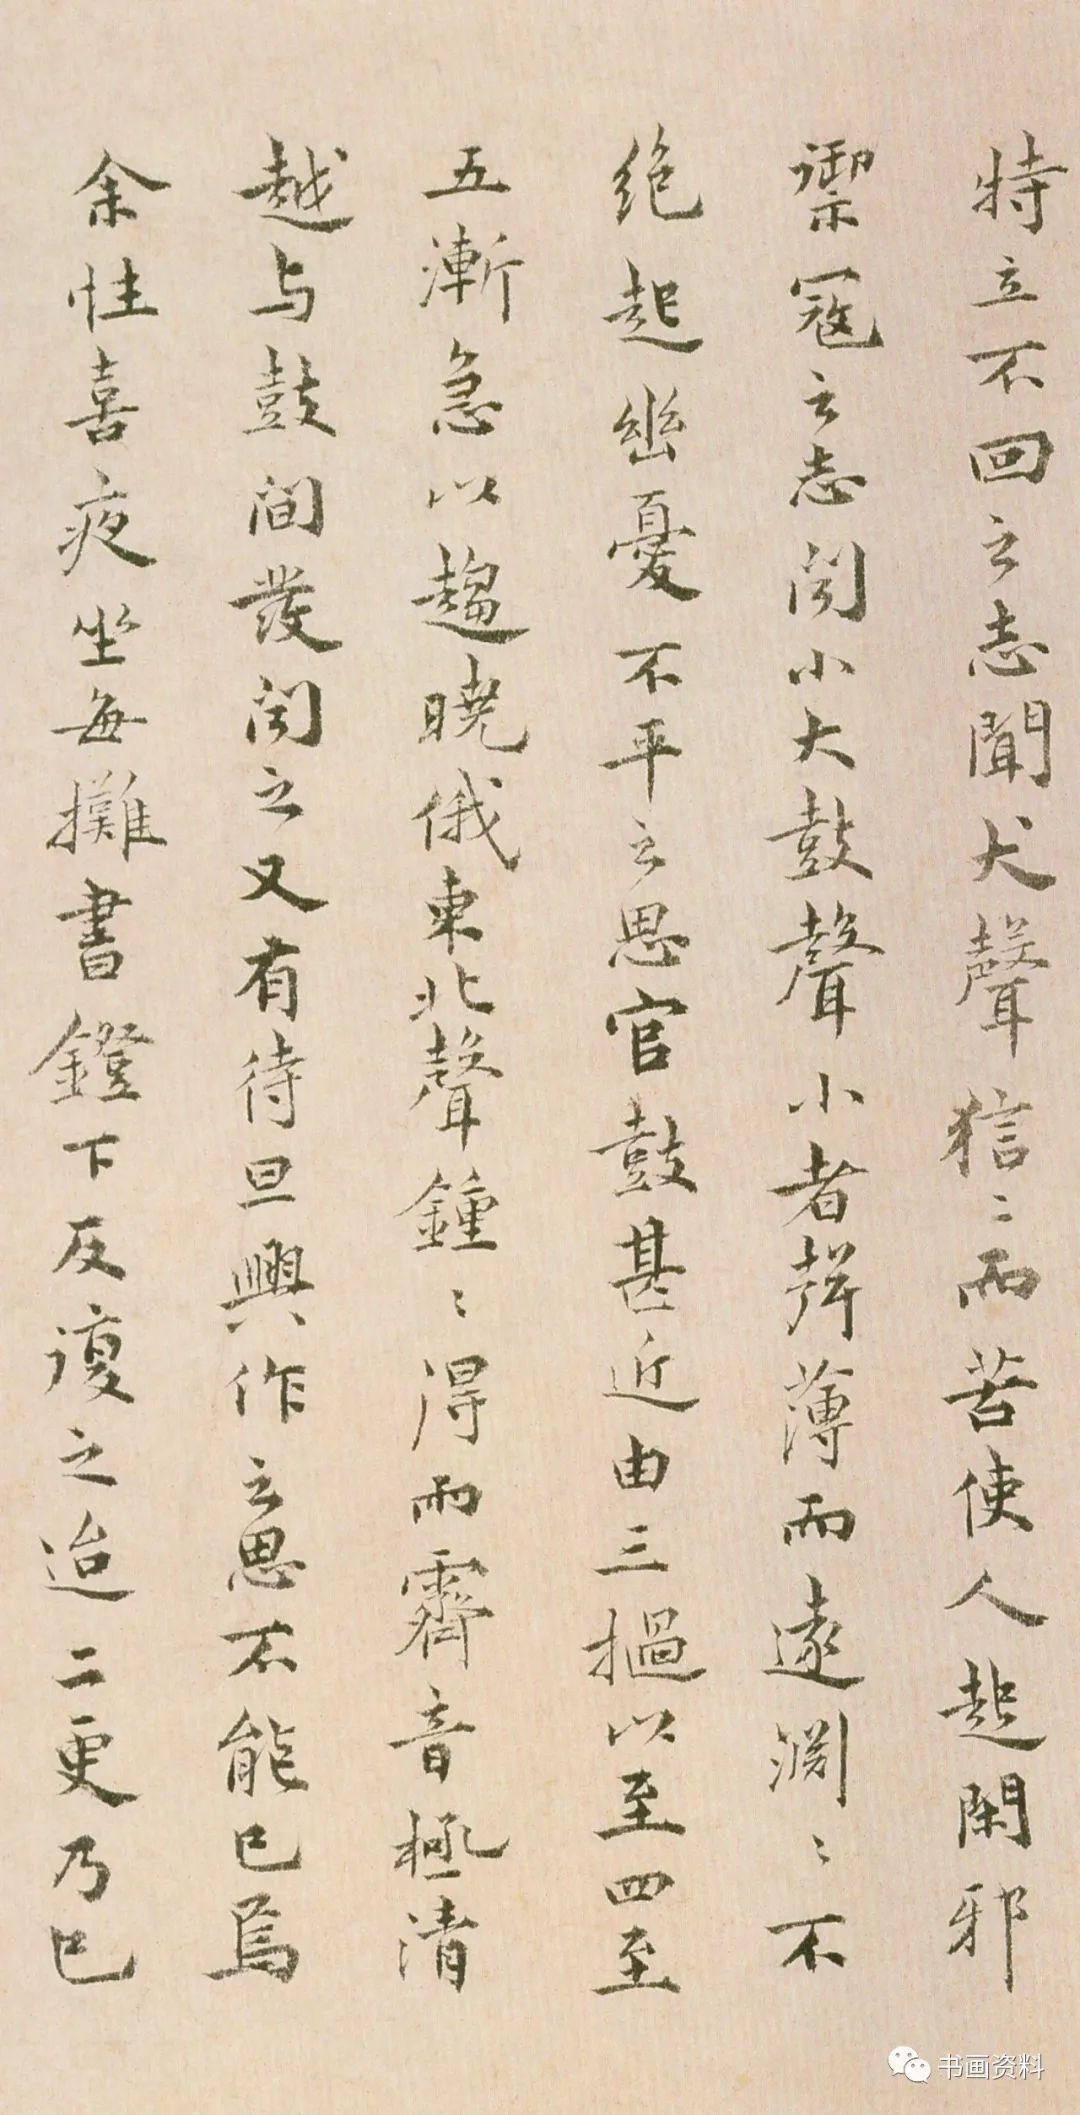 特立不回之志聞犬聲狺〻而苦使人起閑邪
禦寇之志闻小大鼓聲小者聲薄而遠渊〻不
绝起幽憂不平之思官鼓甚近由三撾以至四至
五漸急以趨曉俄東北聲鍾〻得雨霽音極清
越与鼓间發闻之又有待旦興作之思不能已焉
余性喜夜坐每攤書鐙下反復之迨二更乃已
书画资料